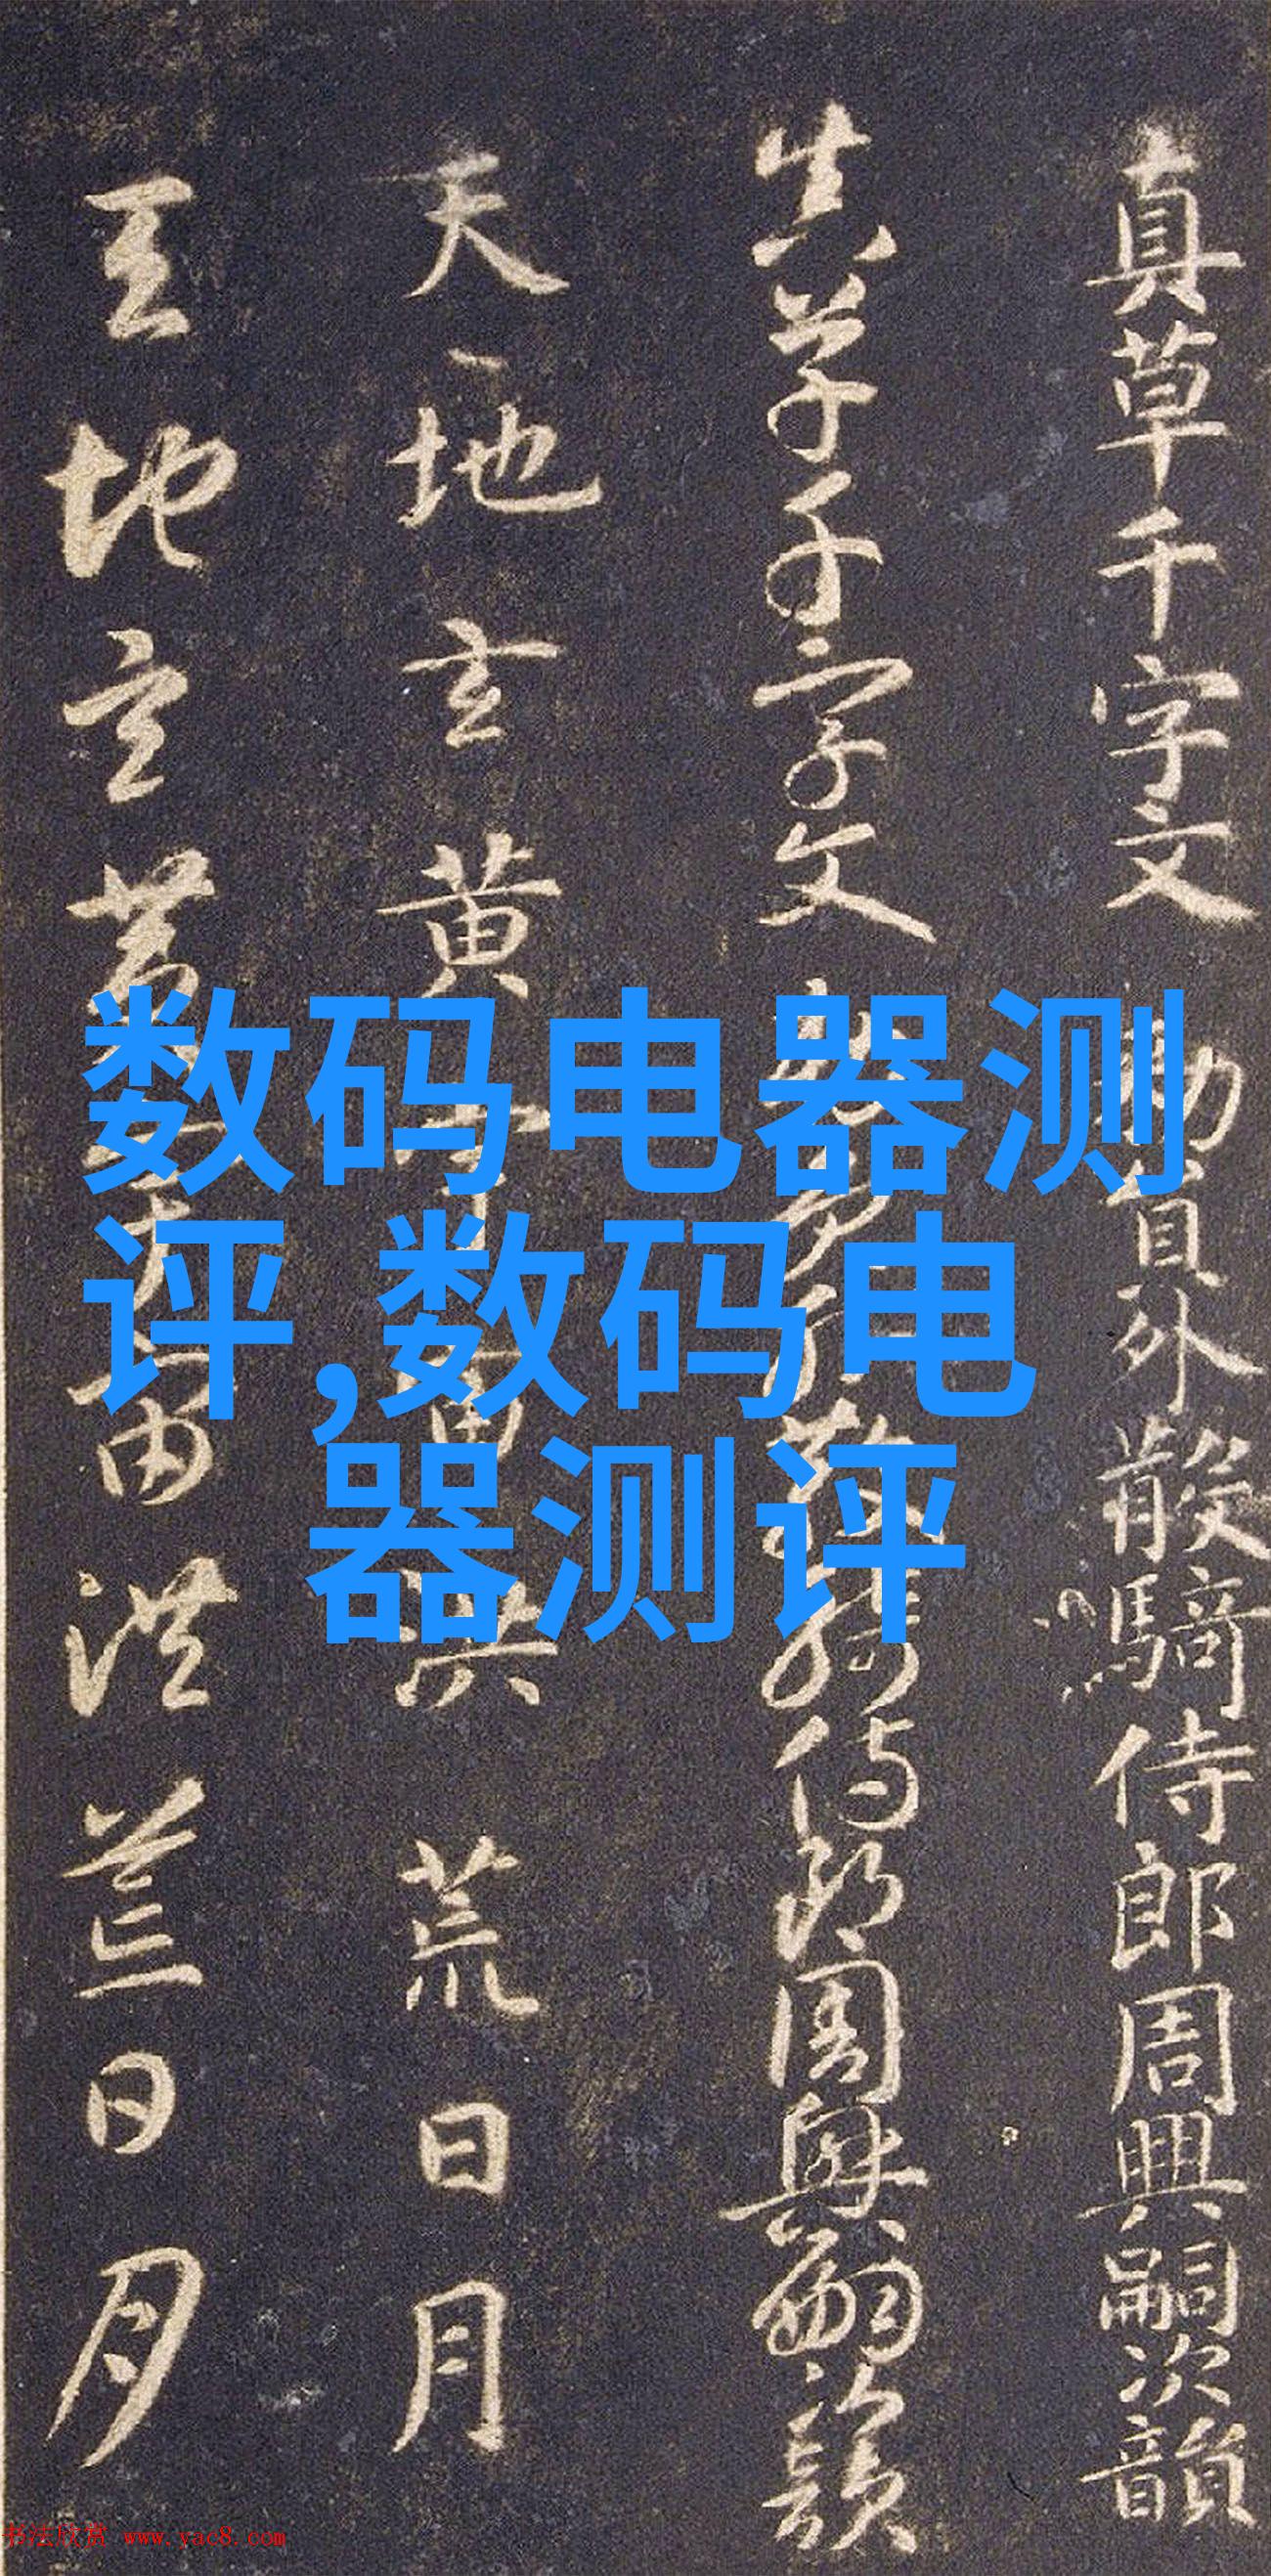 真草千字文 勑員外散騎侍郎周興嗣次韻
真草千字文 勑員外散騎侍郎周興嗣次韻
天地玄黄宇宙洪荒日月
天地玄黄宇宙洪荒日月
数码电器测
评,数码电
器测评
书法欣赏 www.yac8.com